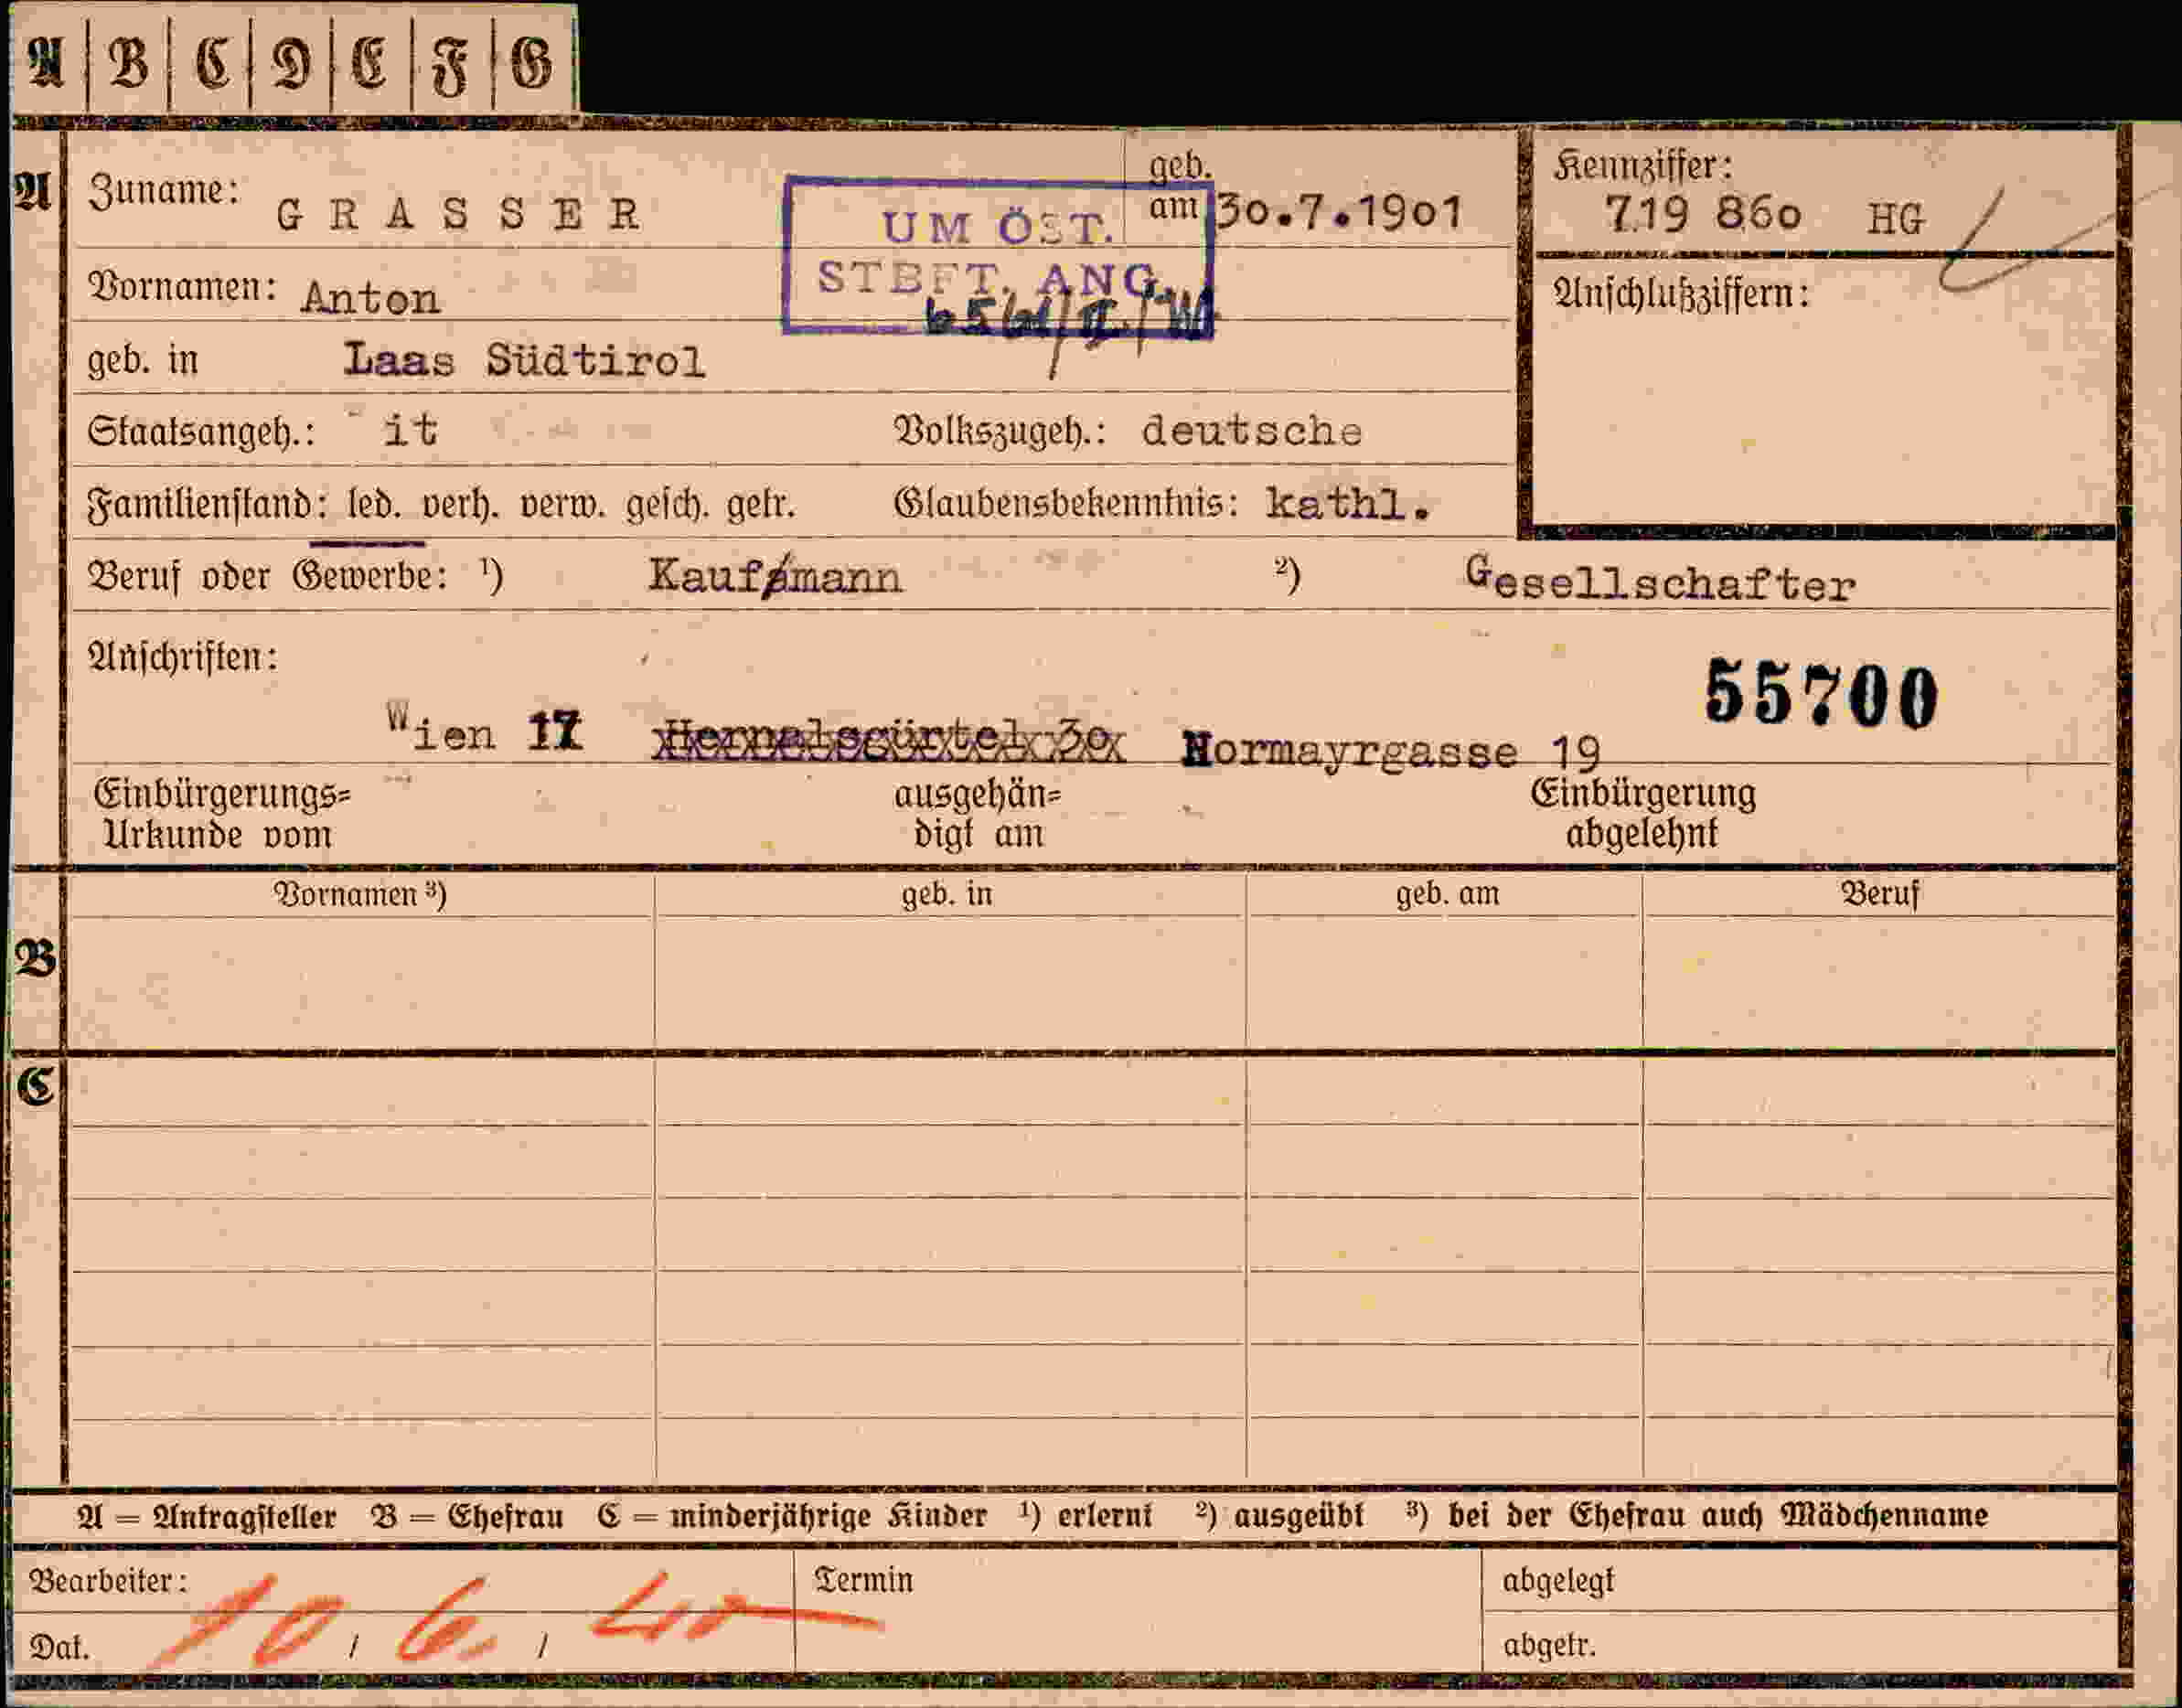 A B C D E F G
A
Zuname: GRASSER
geb. am 30.7.1901
Kennziffer:
719 860 HG
UM ÖST.
STBFT. ANG.
Vornamen: Anton
Anschlußziffern:
geb. in Laas Südtirol
Staatsangeh.: it Volkszugeh.: deutsche
Familienstand: led. verh. verw. gesch. getr. Glaubensbekenntnis: kathl.
Beruf oder Gewerbe: ¹) Kaufmann ²) Gesellschafter
Anschriften:
55700
Wien 17 Hernalsgürtel 30 Hormayrgasse 19
Einbürgerungs= Urkunde vom ausgehän= digt am Einbürgerung abgelehnt
Vornamen ³) geb. in geb. am Beruf
B
C
A = Antragsteller B = Ehefrau C = minderjährige Kinder ¹) erlernt ²) ausgeübt ³) bei der Ehefrau auch Mädchenname
Bearbeiter: Termin abgelegt
Dat. 10 / 6. / 40 abgetr.